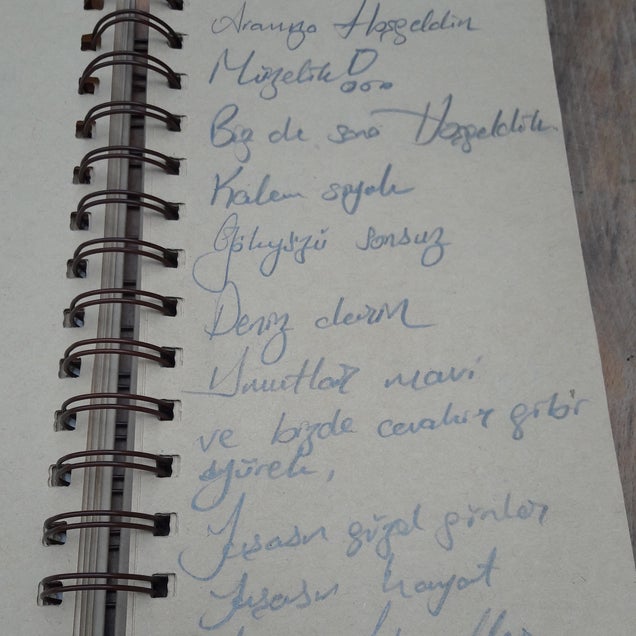 Aramıza Hoşgeldin
Müzelik
Biz de sana Hoşgeldik
Kalem siyah
Gökyüzü sonsuz
Deniz derin
Umutlar mavi
ve bizde cevahir gibi bir
yürek,
Yaşasın güzel günler
Yaşasın hayat